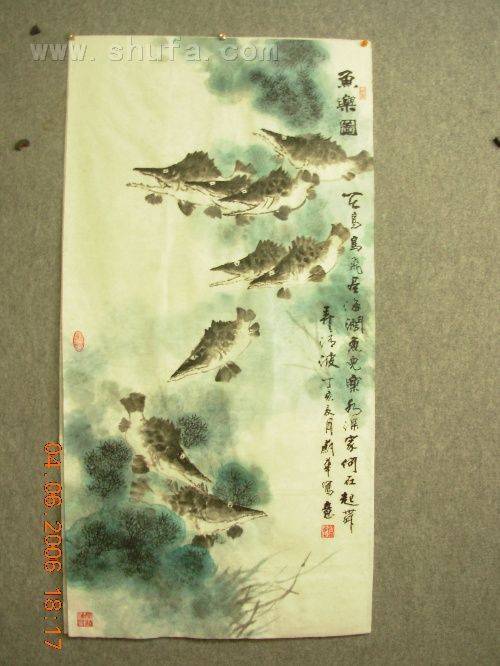 www.shufa.com
魚樂圖
天高鳥飛海濶魚兒樂水深家何在起舞
弄清波 丁亥夏月華寫意
04.06.2006 18:17